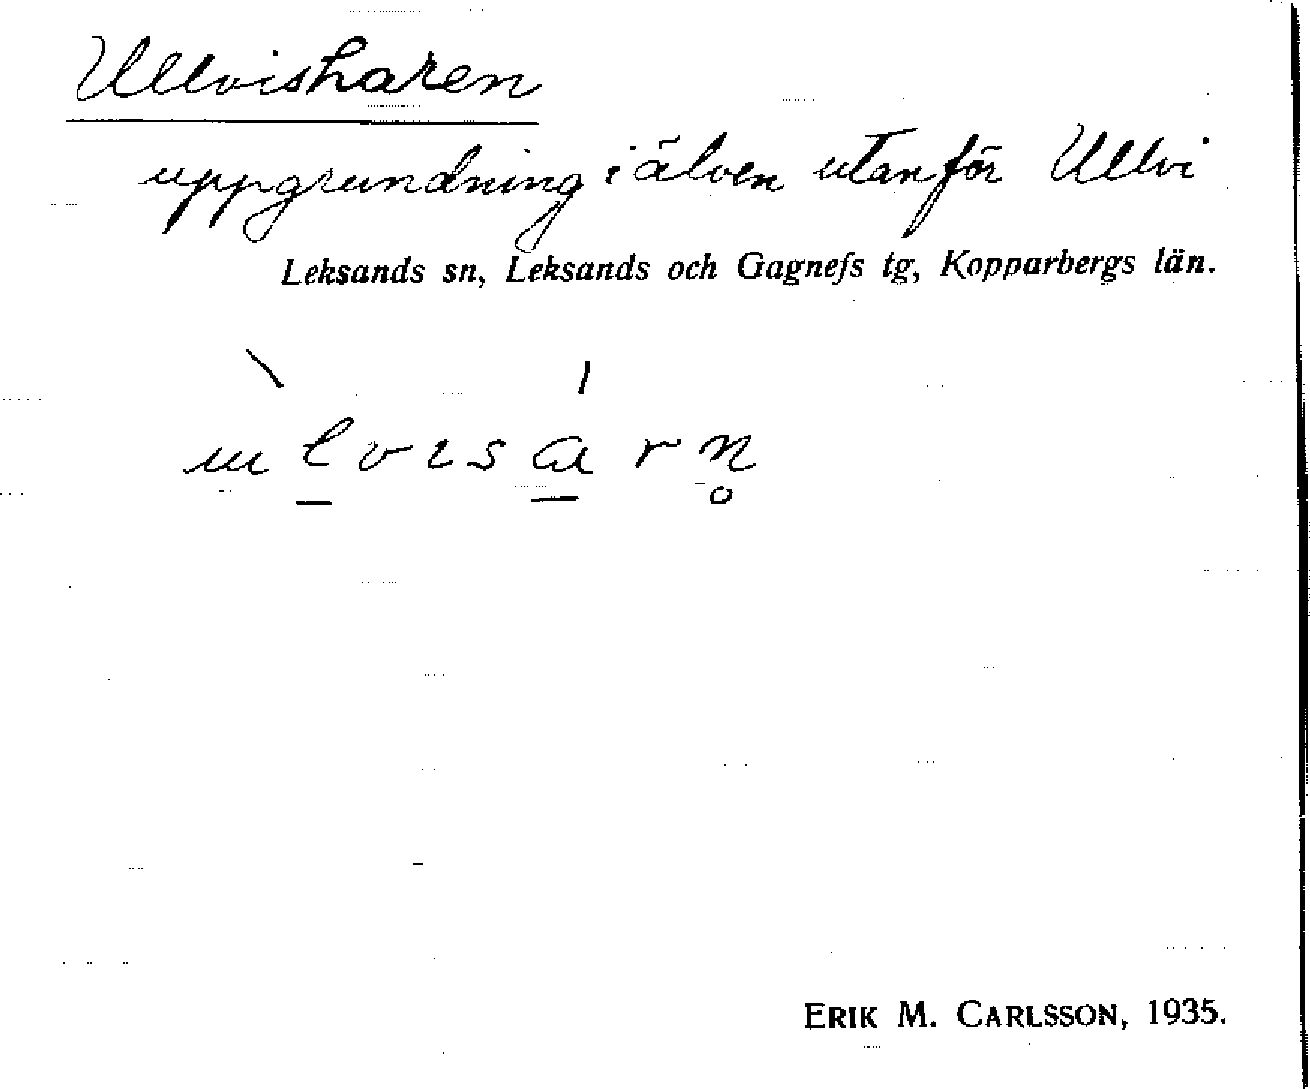 Ullvisharen
uppgrundning i älven utanför Ullvi
Leksands sn, Leksands och Gagnefs tg, Kopparbergs län.
ɯl̠vɩsa̠rn̥
ERIK M. CARLSSON, 1935.